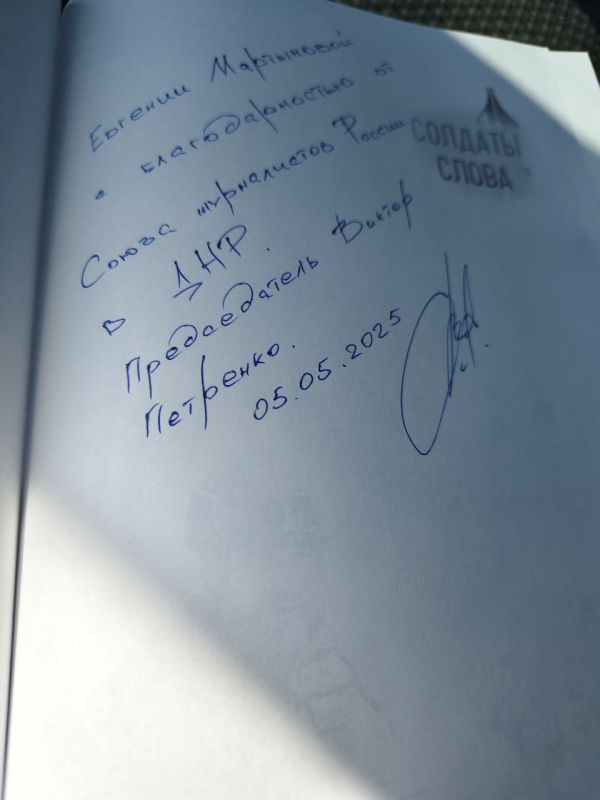 Евгении Мартыновой
с благодарностью от
Союза журналистов России
в ДНР.
Председатель Виктор
Петренко.
05.05.2025
СОЛДАТЫ
СЛОВА